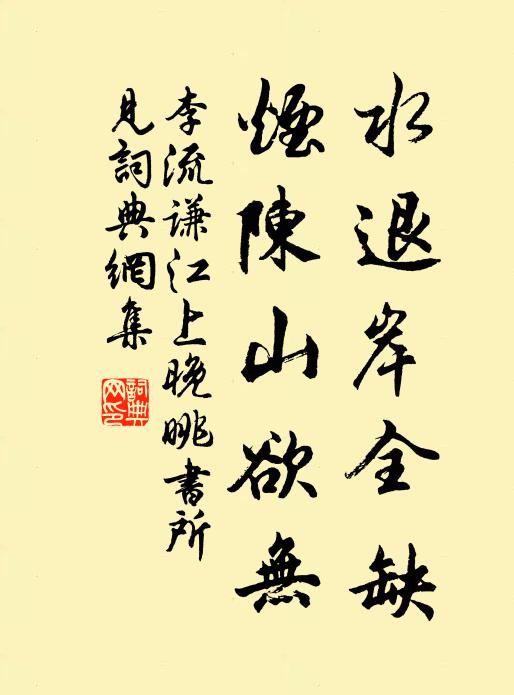 水退岸全缺
煙陳山欲無
李流謙江上晚眺書所
見詞典網集
詞典
网印